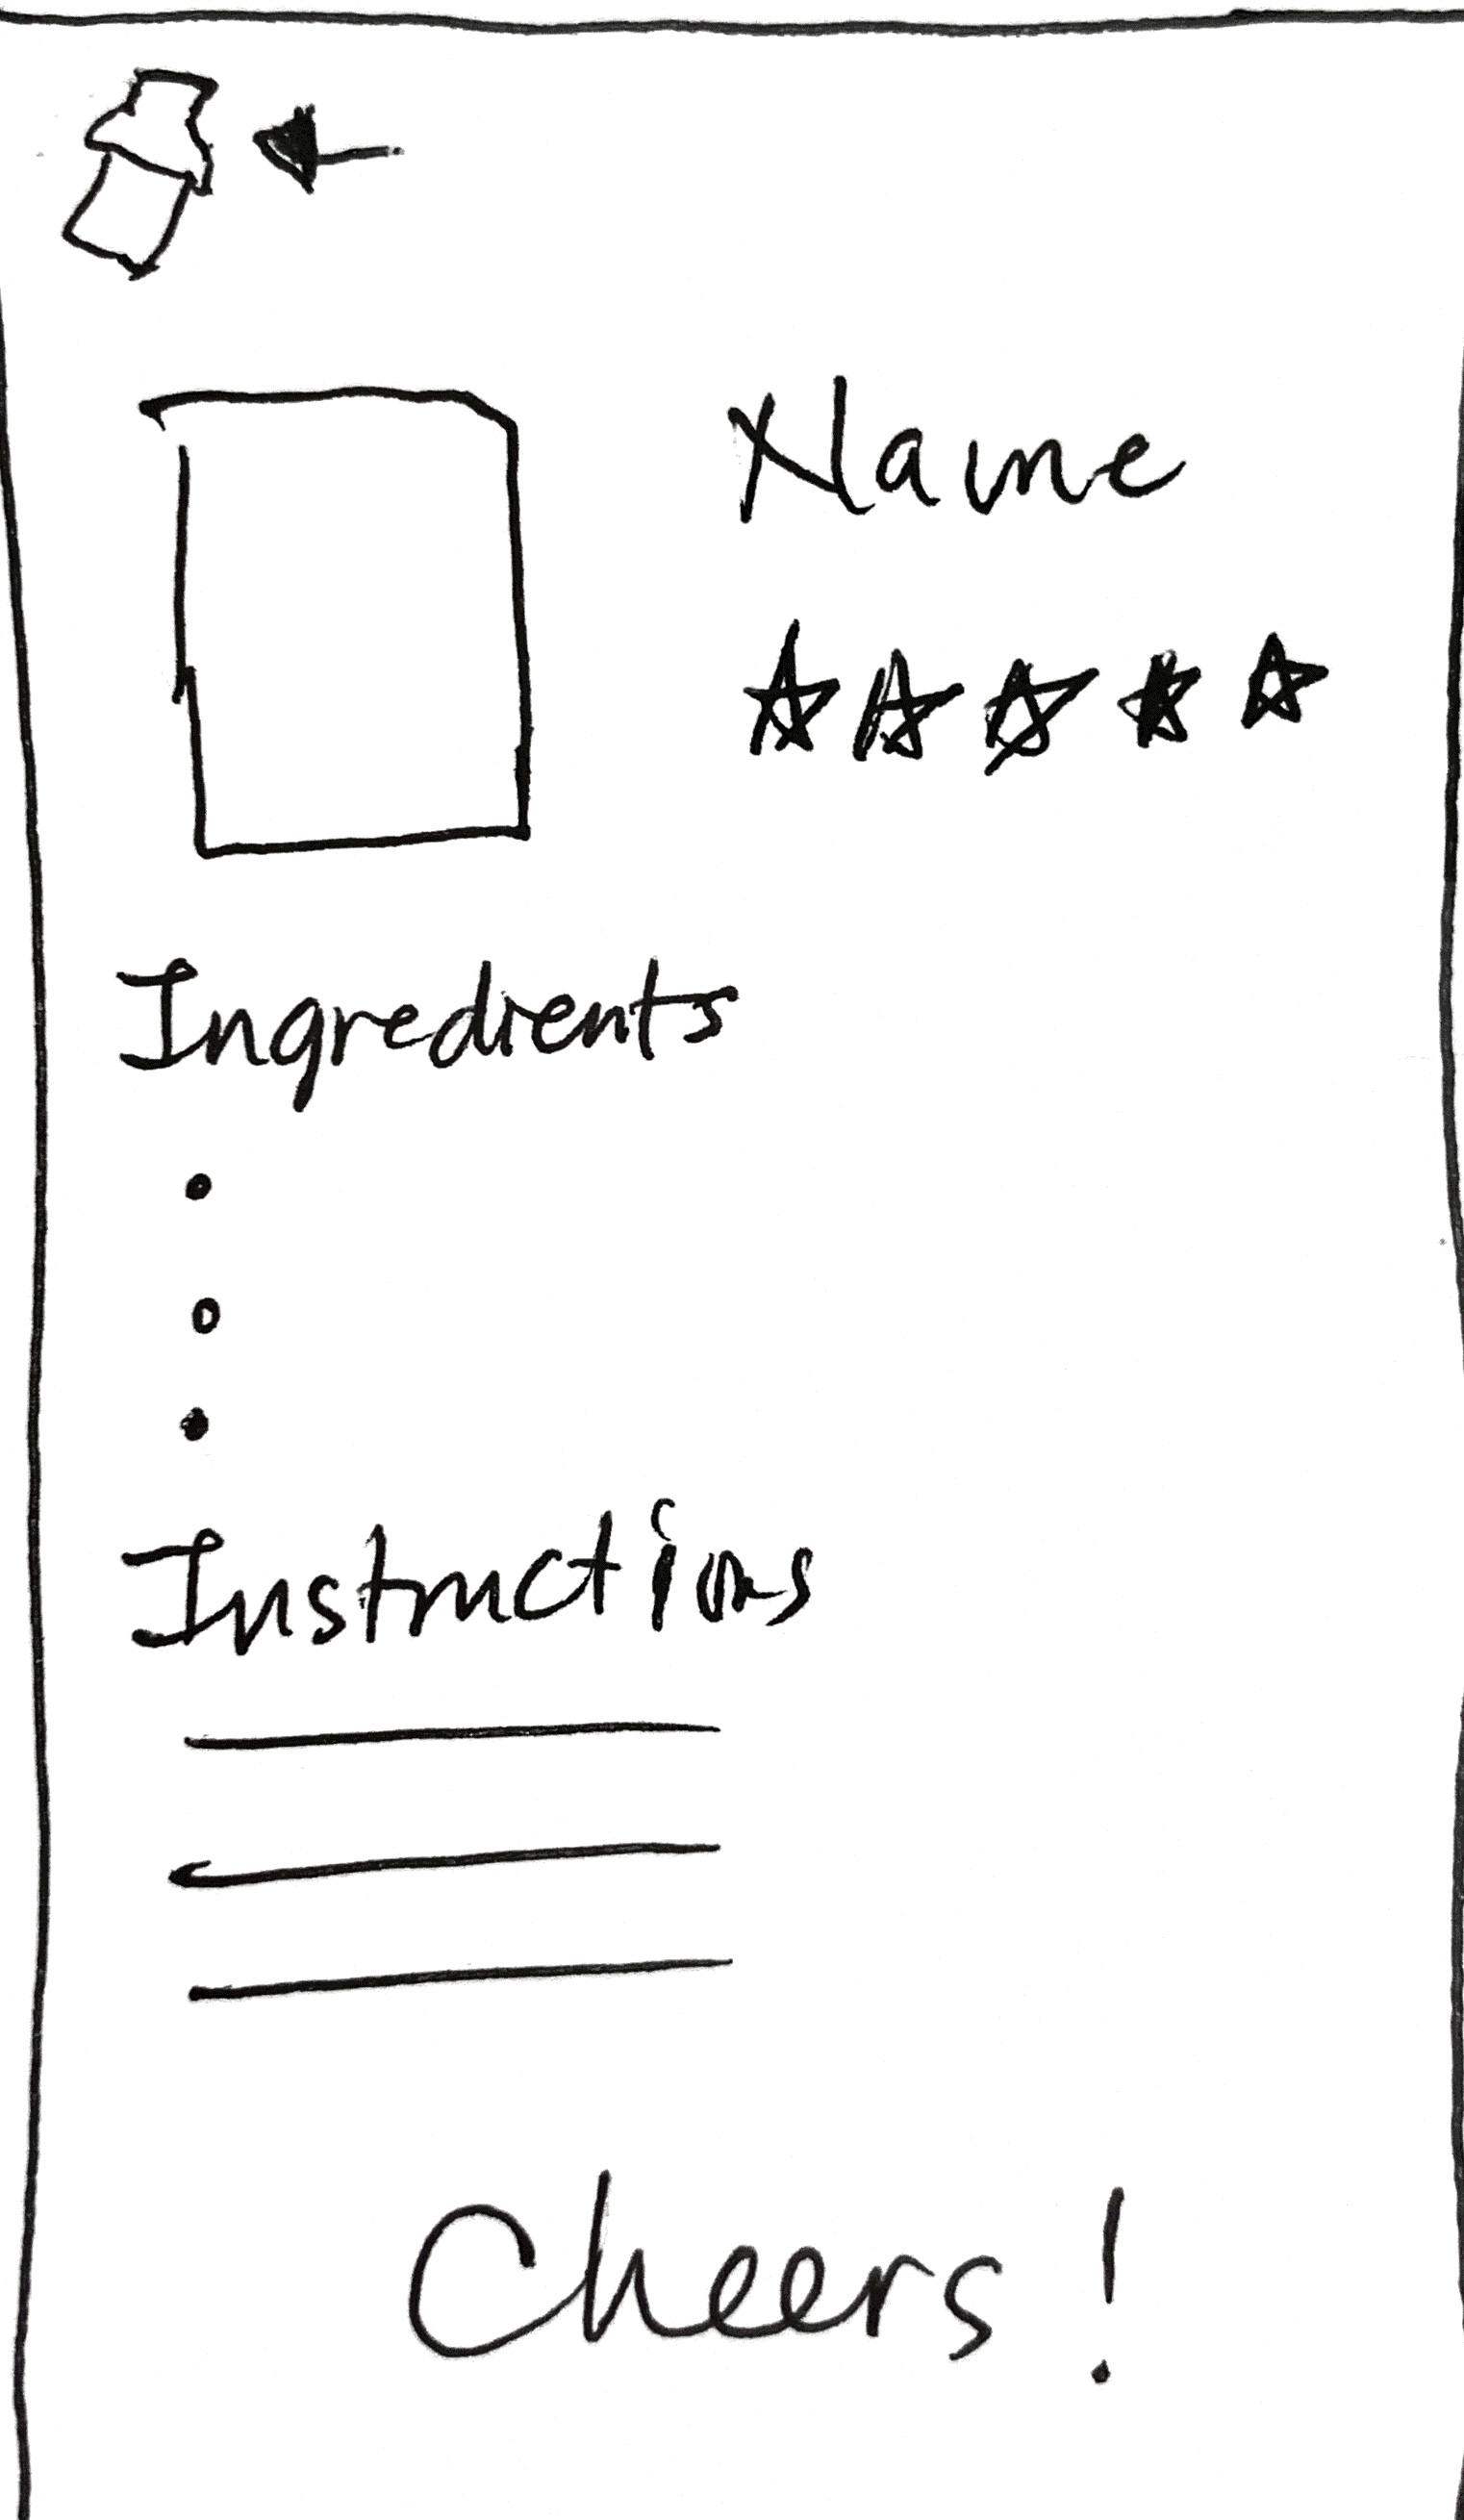 Name
Ingredients
Instructions
Cheers!